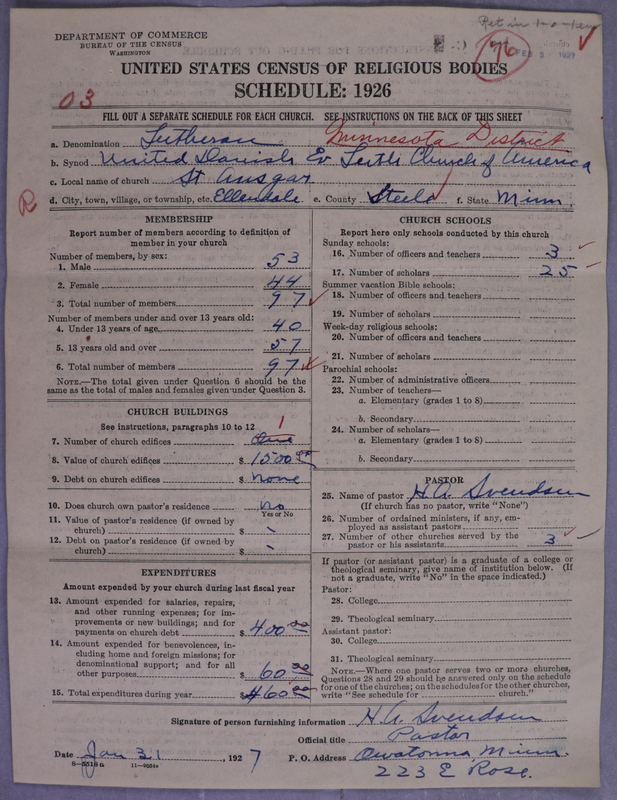 Pet in
DEPARTMENT OF COMMERCE
BUREAU OF THE CENSUS
WASHINGTON
76
FEB 3 1927
UNITED STATES CENSUS OF RELIGIOUS BODIES
SCHEDULE: 1926
03
FILL OUT A SEPARATE SCHEDULE FOR EACH CHURCH. SEE INSTRUCTIONS ON THE BACK OF THIS SHEET
a. Denomination Lutheran Minnesota District
b. Synod United Danish Ev Luth Church of America
c. Local name of church St Ansgar
R
d. City, town, village, or township, etc. Ellendale e. County Steele f. State Minn.
MEMBERSHIP
Report number of members according to definition of
member in your church
Number of members, by sex:
1. Male 53
2. Female 44
3. Total number of members 97
Number of members under and over 13 years old:
4. Under 13 years of age 40
5. 13 years old and over 57
6. Total number of members 97
NOTE.—The total given under Question 6 should be the
same as the total of males and females given under Question 3.
CHURCH BUILDINGS
See instructions, paragraphs 10 to 12
1
7. Number of church edifices One
8. Value of church edifices $ 1500 00
9. Debt on church edifices $ None
10. Does church own pastor's residence No
Yes or No
11. Value of pastor's residence (if owned by
church) $ -
12. Debt on pastor's residence (if owned by
church) $ -
EXPENDITURES
Amount expended by your church during last fiscal year
13. Amount expended for salaries, repairs,
and other running expenses; for im-
provements or new buildings; and for
payments on church debt $ 400 00
14. Amount expended for benevolences, in-
cluding home and foreign missions; for
denominational support; and for all
other purposes $ 60 00
15. Total expenditures during year $ 460 00
CHURCH SCHOOLS
Report here only schools conducted by this church
Sunday schools:
16. Number of officers and teachers 3
17. Number of scholars 25
Summer vacation Bible schools:
18. Number of officers and teachers
19. Number of scholars
Week-day religious schools:
20. Number of officers and teachers
21. Number of scholars
Parochial schools:
22. Number of administrative officers
23. Number of teachers—
a. Elementary (grades 1 to 8)
b. Secondary
24. Number of scholars—
a. Elementary (grades 1 to 8)
b. Secondary
PASTOR
25. Name of pastor H. A. Svendsen
(If church has no pastor, write "None")
26. Number of ordained ministers, if any, em-
ployed as assistant pastors
27. Number of other churches served by the
pastor or his assistants 3
If pastor (or assistant pastor) is a graduate of a college or
theological seminary, give name of institution below. (If
not a graduate, write "No" in the space indicated.)
Pastor:
28. College
29. Theological seminary
Assistant pastor:
30. College
31. Theological seminary
NOTE.—Where one pastor serves two or more churches,
Questions 28 and 29 should be answered only on the schedule
for one of the churches; on the schedules for the other churches,
write "See schedule for church."
Signature of person furnishing information H. A. Svendsen
Official title Pastor
Date Jan 31, 1927 P. O. Address Owatonna, Minn.
8-5518a 223 E Rose.